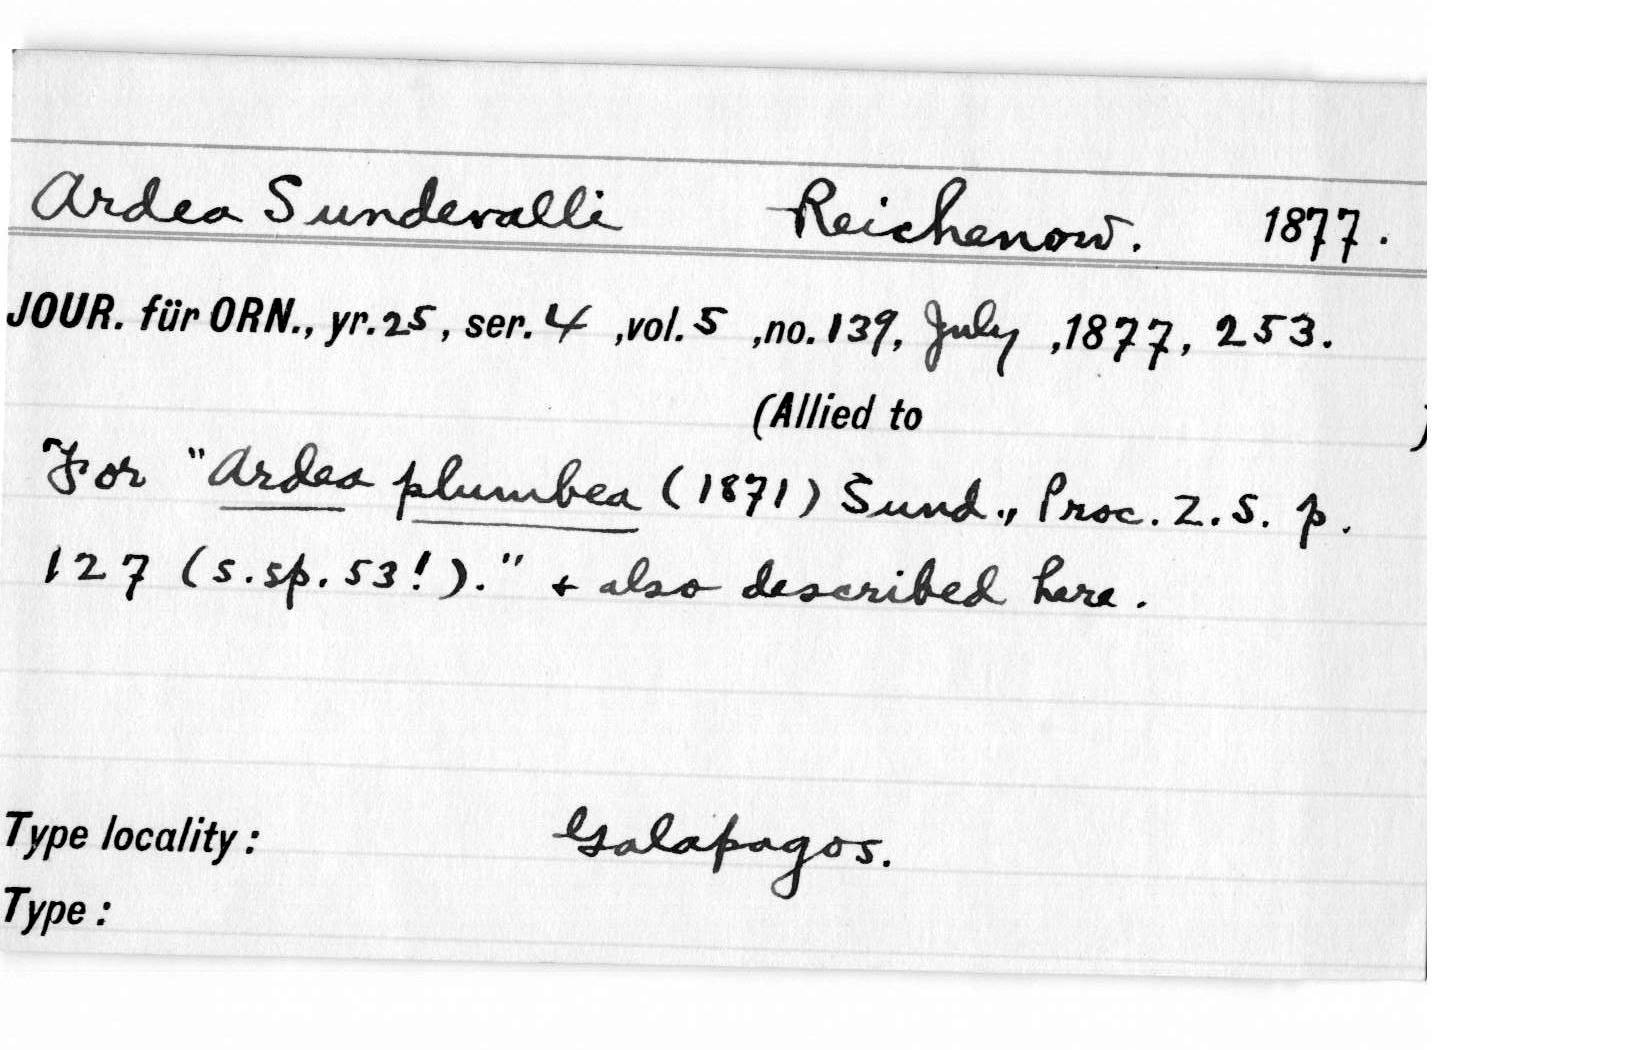 Ardea Sundevalli Reichenow. 1877.
JOUR. für ORN., yr. 25, ser. 4, vol. 5, no. 139, July, 1877, 253.
(Allied to )
For "Ardea plumbea (1871) Sund., Proc. Z. S. p.
127 (s. sp. 53!)." + also described here.
Type locality: Galapagos.
Type: